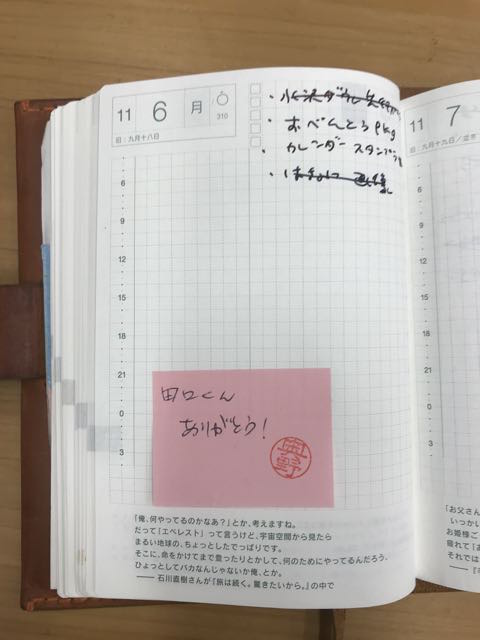 11 6 月 310
旧：九月十八日
・おべんとうpkg
・カレンダー スタンプ
6
9
12
15
18
21
0
3
田口くん
ありがとう！
奥野
「俺、何やってるのかなあ？」とか、考えますね。
だって「エベレスト」って言うけど、宇宙空間から見たら
まるい地球の、ちょっとしたでっぱりです。
そこに、命をかけてまで登ったりとかして、何のためにやってるんだろう、
ひょっとしてバカなんじゃないか俺、とか。
―― 石川直樹さんが『旅は続く。驚きたいから。』の中で
11 7
旧：九月十九日／立冬
「お父さん
いっかい
お姫様ご
疲れて「あ
それでは